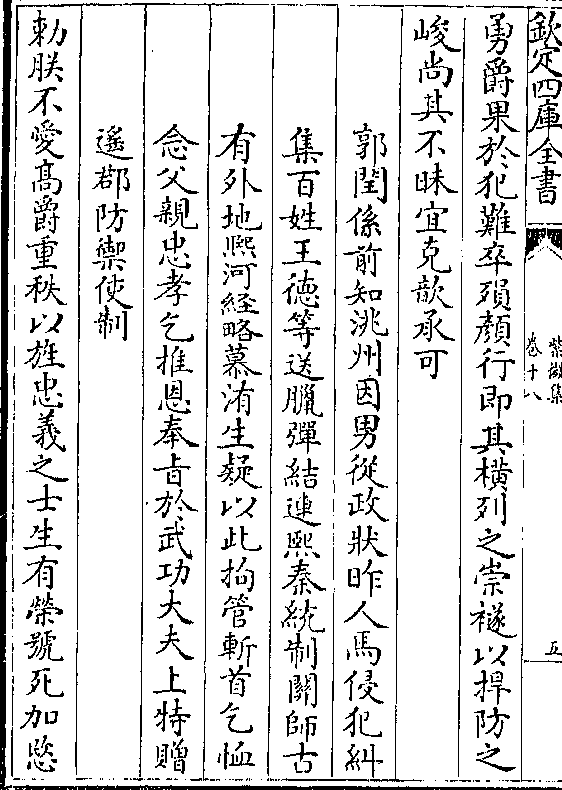 欽定四庫全書
紫微集
卷十八
五
勇爵果於犯難卒殞顏行即其橫列之崇襚以捍防之
峻尚其不昧宜克歆承可
郭誾係前知洮州因男從政狀昨人馬侵犯糾
集百姓王德等送臘彈結連熙秦統制關師古
有外地熙河經略慕洧生疑以此拘管斬首乞恤
念父親忠孝乞推恩奉㫖於武功大夫上特贈
遥郡防禦使制
勅朕不愛髙爵重秩以旌忠義之士生有榮號死加愍